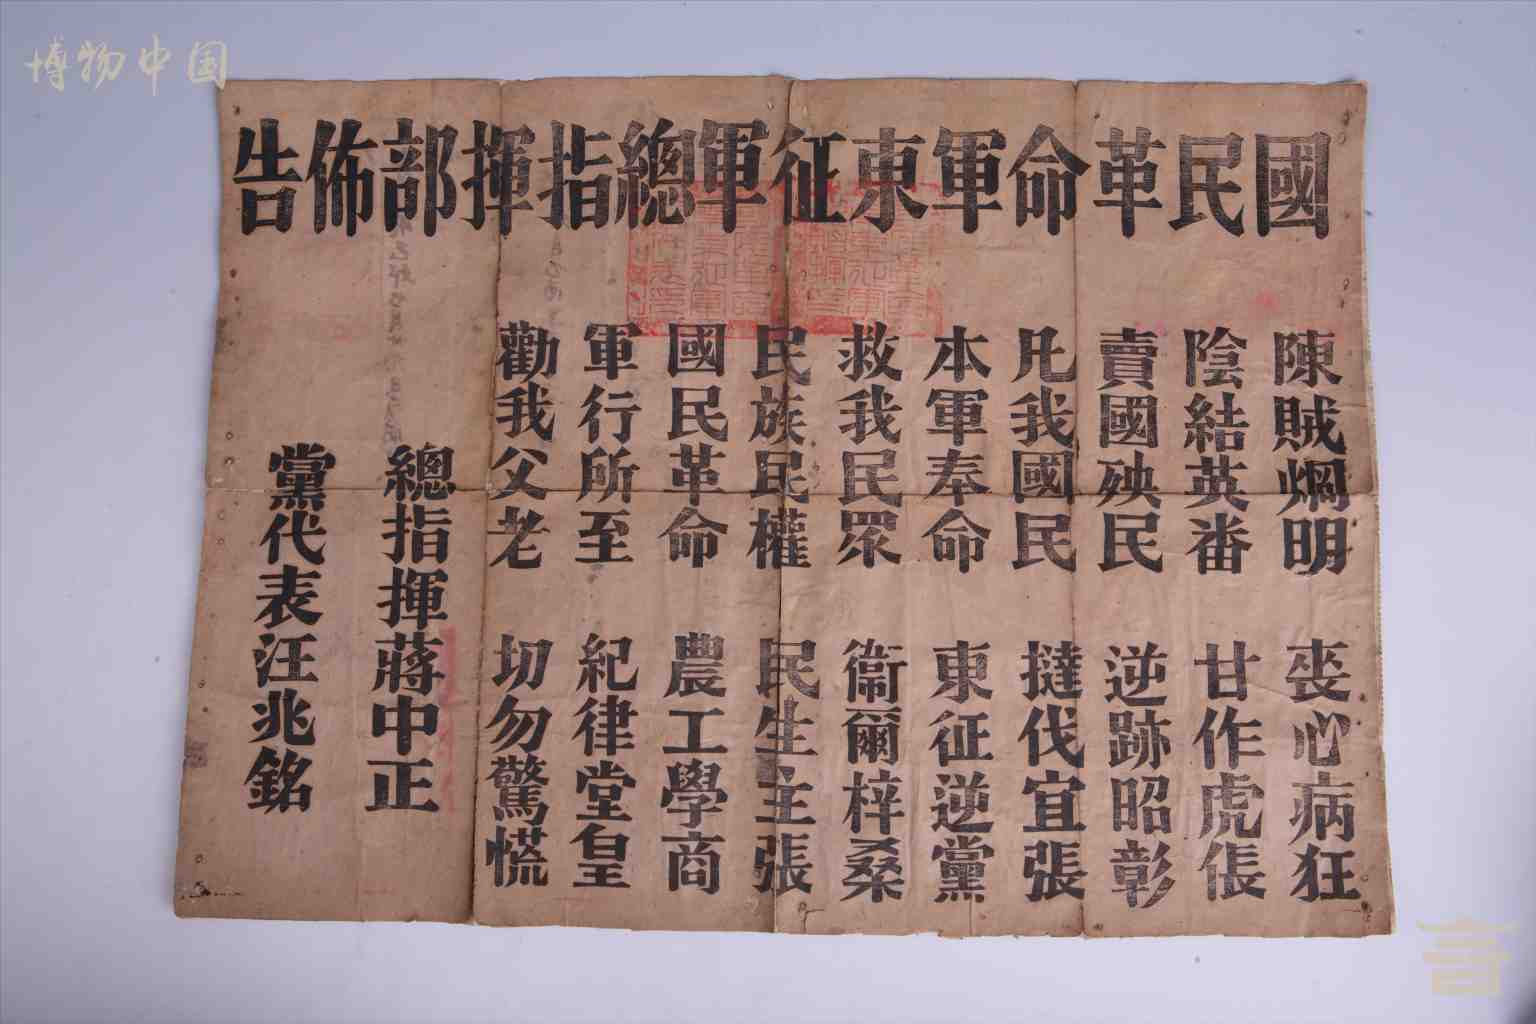 博物中国
國民革命軍東征軍總指揮部佈告
陳賊烱明 丧心病狂
陰結英番 甘作虎倀
賣國殃民 逆跡昭彰
凡我國民 撻伐宜張
本軍奉命 東征逆黨
救我民眾 衞爾梓桑
民族民權 民生主張
國民革命 農工學商
軍行所至 紀律堂皇
勸我父老 切勿驚慌
總指揮蔣中正
黨代表汪兆銘